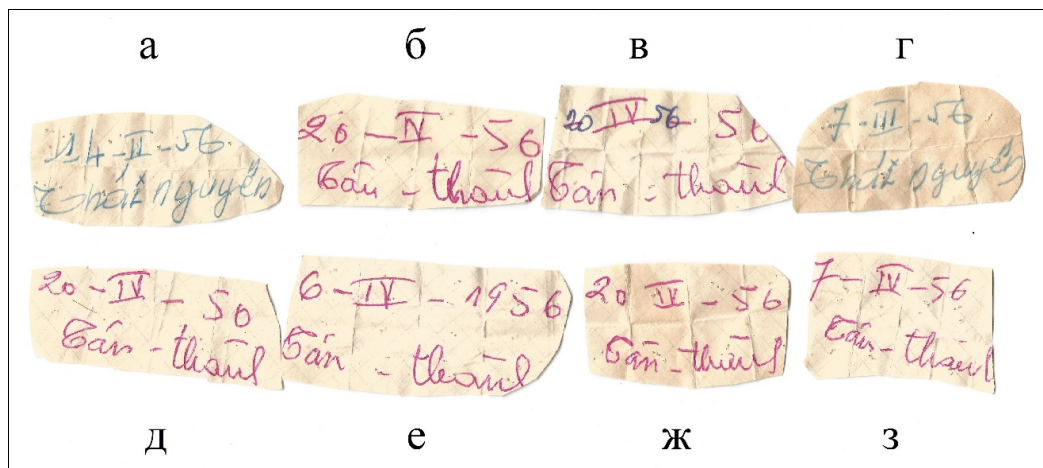 а б в г
14-II-56
Thái nguyên
20-IV-56
Tân-thành
20 IV 56 - 56
Tân-thành
7-III-56
Thái nguyên
20-IV-50
Tân-thành
6-IV-1956
Tân-thành
20 IV-56
Tân-thành
7-IV-56
Tân-thành
д е ж з